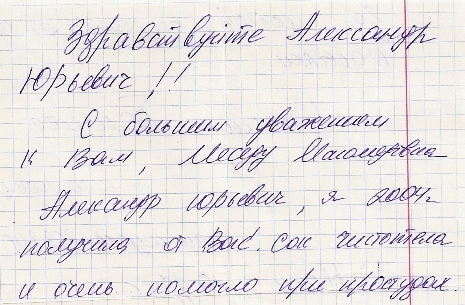 Здравствуйте Александр
Юрьевич!!
С большим уважением
к Вам,
Александр Юрьевич, я 2004г.
получила от Вас. сок чистотела
и очень помогло при простудах.